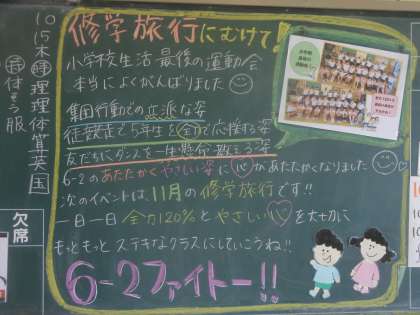 修学旅行にむけて!
小学校生活 最後の運動会
本当によくがんばりました
集団行動での立派な姿
徒競走で5年生を全力で応援する姿
友だちにダンスを一生懸命教える姿
6-2のあたたかくやさしい姿に心があたたかくなりました
次のイベントは、11月の修学旅行です!!
一日一日 全力120%とやさしい心を大切に
もっともっとステキなクラスにしていこうね!!
6-2ファイトー!!
10/15木
理理体算英国
付せる服
欠席